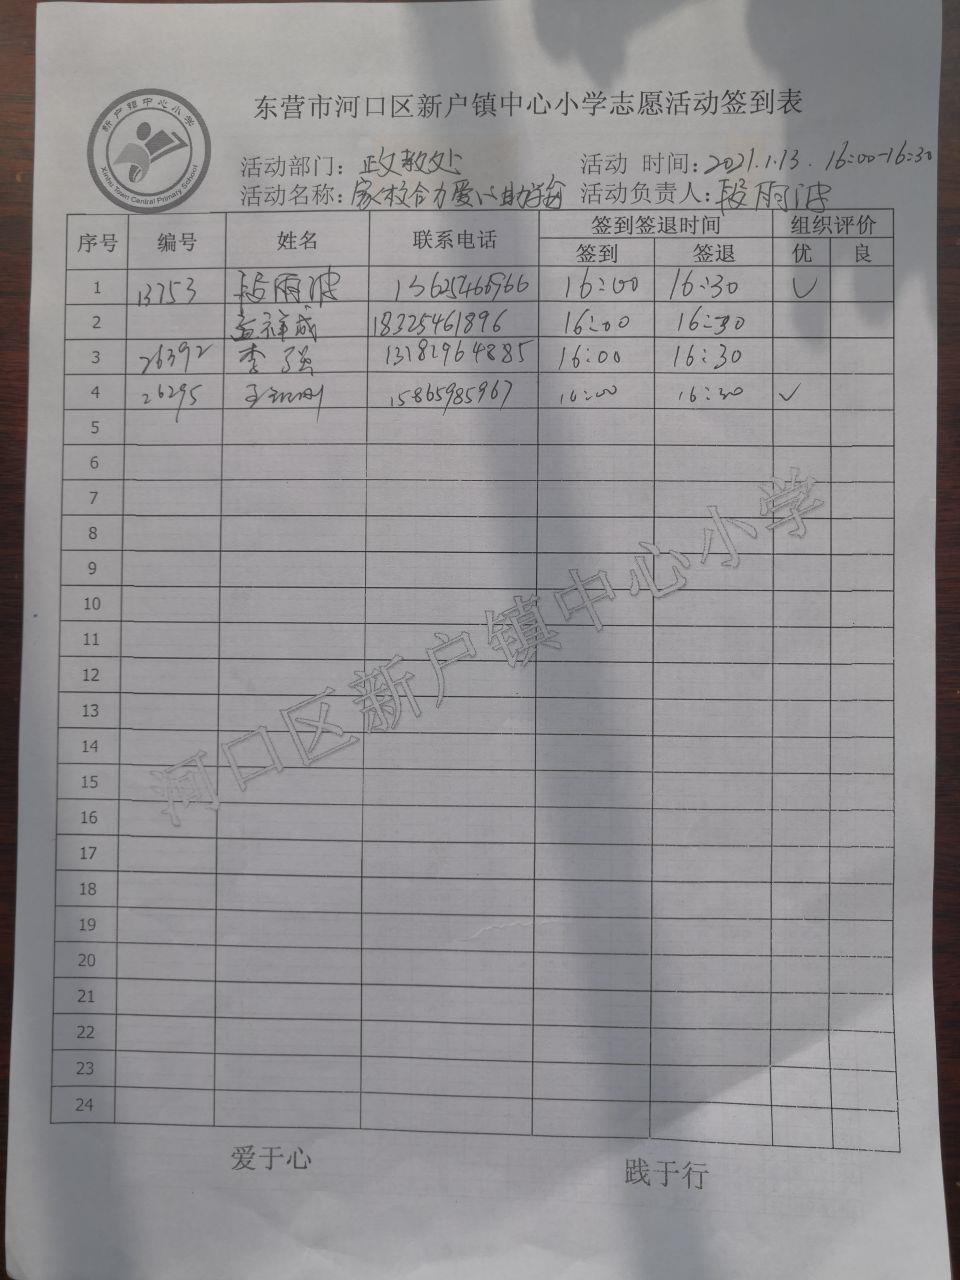 新户镇中心小学
Xinhu Town Central Primary School
东营市河口区新户镇中心小学志愿活动签到表
活动部门：政教处 活动 时间：2021.1.13. 16:00-16:30
活动名称：家校合力爱心助学 活动负责人：段雨波
序号 编号 姓名 联系电话 签到签退时间 组织评价
签到 签退 优 良
1 13753 段雨波 13625466966 16:00 16:30 ✓
2 祥成 18325461896 16:00 16:30
3 26392 李强 13181964885 16:00 16:30
4 26295 王 15865985967 16:00 16:30 ✓
5
6
7
8
9
10
11
12
13
14
15
16
17
18
19
20
21
22
23
24
河口区新户镇中心小学
爱于心 践于行